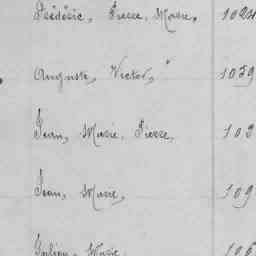 Frédéric, Pierre, Marie, 1024
Auguste, Victor, " 1059
Jean, Marie, Pierre, 103
Jean, Marie, 109
Julien, Marie 106